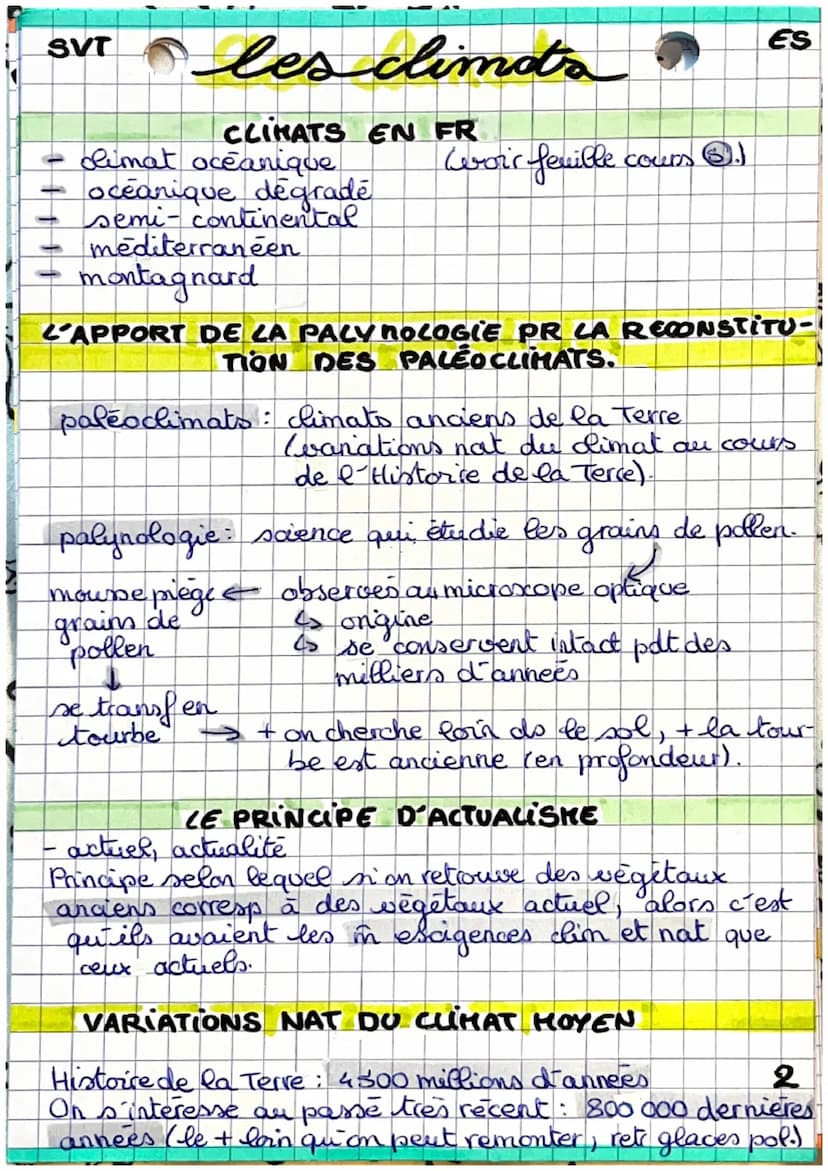 SVT
les climats
ES
CLIMATS EN FR
- climat océanique
(voir feuille cours ⑤.)
- océanique dégradé
- semi-continental
- méditerranéen
- montagnard
L'APPORT DE LA PALYNOLOGIE PR LA RECONSTITU-
TION DES PALÉOCLIMATS.
paléoclimats : climats anciens de la Terre
(variations nat du climat au cours
de l'Histoire de la Terre).
palynologie : science qui étudie les grains de pollen.
mousse piège ← observés au microscope optique
grains de ↳ origine
pollen ↳ se conservent intact pdt des
↓ milliers d'années
se transf en
tourbe → + on cherche loin ds le sol, + la tour-
be est ancienne (en profondeur).
LE PRINCIPE D'ACTUALISME
- actuel, actualité
Principe selon lequel si on retrouve des végétaux
anciens corresp à des végétaux actuel, alors c'est
qu'ils avaient les m̄ exigences clim et nat que
ceux actuels.
VARIATIONS NAT DU CLIMAT MOYEN
Histoire de la Terre : 4500 millions d'années
2
On s'intéresse au passé très récent : 800 000 dernières
années (le + loin qu'on peut remonter, pol.)